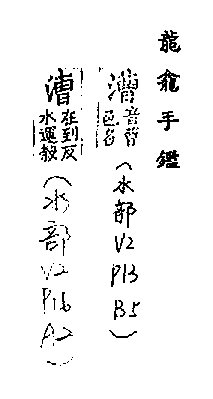 龍龕手鑑
漕音曹邑名(水部V2P13B5)
漕在到反水運穀(水部V2P16A2)